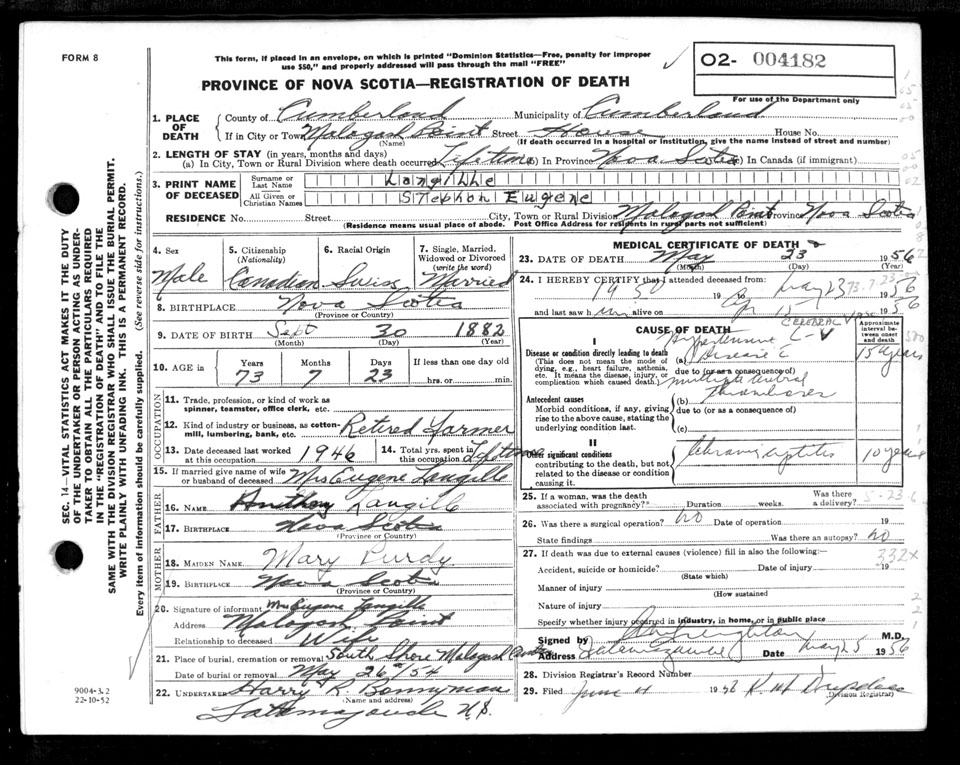 FORM 8
This form, if placed in an envelope, on which is printed "Dominion Statistics—Free, penalty for improper
use $50," and properly addressed will pass through the mail "FREE"
O2- 004182
For use of the Department only
PROVINCE OF NOVA SCOTIA—REGISTRATION OF DEATH
1. PLACE OF DEATH
County of Cumberland Municipality of Cumberland
If in City or Town Malagash Point Street House House No.
(Name) (If death occurred in a hospital or institution, give the name instead of street and number)
2. LENGTH OF STAY (in years, months and days)
(a) In City, Town or Rural Division where death occurred Lifetime (b) In Province Nova Scotia (c) In Canada (if immigrant)
3. PRINT NAME OF DECEASED
Surname or Last Name Langille
All Given or Christian Names Stephen Eugene
RESIDENCE No. Street City, Town or Rural Division Malagash Point Province Nova Scotia
(Residence means usual place of abode. Post Office Address for residents in rural parts not sufficient)
4. Sex Male
5. Citizenship (Nationality) Canadian
6. Racial Origin Swiss
7. Single, Married, Widowed or Divorced (write the word) Married
8. BIRTHPLACE Nova Scotia
(Province or Country)
9. DATE OF BIRTH Sept 30 1882
(Month) (Day) (Year)
10. AGE in Years Months Days If less than one day old
73 7 23 hrs. or min.
OCCUPATION
11. Trade, profession, or kind of work as
spinner, teamster, office clerk, etc.
12. Kind of industry or business, as cotton-
mill, lumbering, bank, etc. Retired Farmer
13. Date deceased last worked at this occupation 1946
14. Total yrs. spent in this occupation Lifetime
15. If married give name of wife
or husband of deceased Mrs Eugene Langille
FATHER
16. NAME Anthony Langille
17. BIRTHPLACE Nova Scotia
(Province or Country)
MOTHER
18. MAIDEN NAME Mary Purdy
19. BIRTHPLACE Nova Scotia
(Province or Country)
20. Signature of informant Mrs Eugene Langille
Address Malagash Point
Relationship to deceased Wife
21. Place of burial, cremation or removal South Shore Malagash Centre
Date of burial or removal May 26/54
22. UNDERTAKER Harry R. Bonnyman
(Name and address)
Tatamagouche N.S.
MEDICAL CERTIFICATE OF DEATH
23. DATE OF DEATH May 23 1956
(Month) (Day) (Year)
24. I HEREBY CERTIFY that I attended deceased from:
1950 19 to May 23 1956
and last saw him alive on 1956
CAUSE OF DEATH
Approximate interval between onset and death
I
Disease or condition directly leading to death
(This does not mean the mode of
dying, e.g., heart failure, asthenia,
etc. It means the disease, injury, or
complication which caused death.)
(a) Hypertensive C-V CEREBRAL
Disease c 15 years
due to (or as a consequence of)
multiple cerebral
Antecedent causes
Morbid conditions, if any, giving
rise to the above cause, stating the
underlying condition last.
(b) thromboses
due to (or as a consequence of)
(c)
II
Other significant conditions
contributing to the death, but not
related to the disease or condition
causing it.
Chronic 10 years
25. If a woman, was the death
associated with pregnancy? Duration weeks. Was there a delivery?
26. Was there a surgical operation? no Date of operation 19
State findings Was there an autopsy? no
27. If death was due to external causes (violence) fill in also the following:—
332X
Accident, suicide or homicide? Date of injury 19
(State which)
Manner of injury
(How sustained
Nature of injury
Specify whether injury occurred in industry, in home, or in public place
Signed by M.D.
Address Tatamagouche Date May 25 1956
28. Division Registrar's Record Number
29. Filed June 4 1956
(Division Registrar)
SEC. 14—VITAL STATISTICS ACT MAKES IT THE DUTY
OF THE UNDERTAKER OR PERSON ACTING AS UNDER-
TAKER TO OBTAIN ALL THE PARTICULARS REQUIRED
IN THE "REGISTRATION OF DEATH" AND TO FILE THE
SAME WITH THE DIVISION REGISTRAR WHO SHALL ISSUE THE BURIAL PERMIT.
WRITE PLAINLY WITH UNFADING INK. THIS IS A PERMANENT RECORD.
Every item of information should be carefully supplied. (See reverse side for instructions.)
9004-3.2
22-10-52